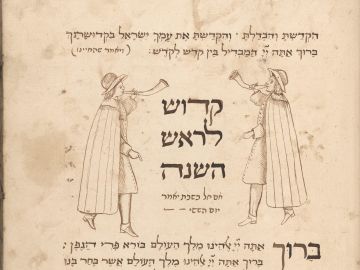 הקדשת והבדלת . והקדשת את עמך ישראל בקדושתך
ברוך אתה יי המבדיל בין קדש לקדש: (ויאמר שהחיינו)
קדוש
לראש
השנה
אם חל בשבת יאמר
יום הששי
ברוך אתה יי אלהינו מלך העולם בורא פרי הגפן:
ברוך אתה יי אלהינו מלך העולם אשר בחר בנו